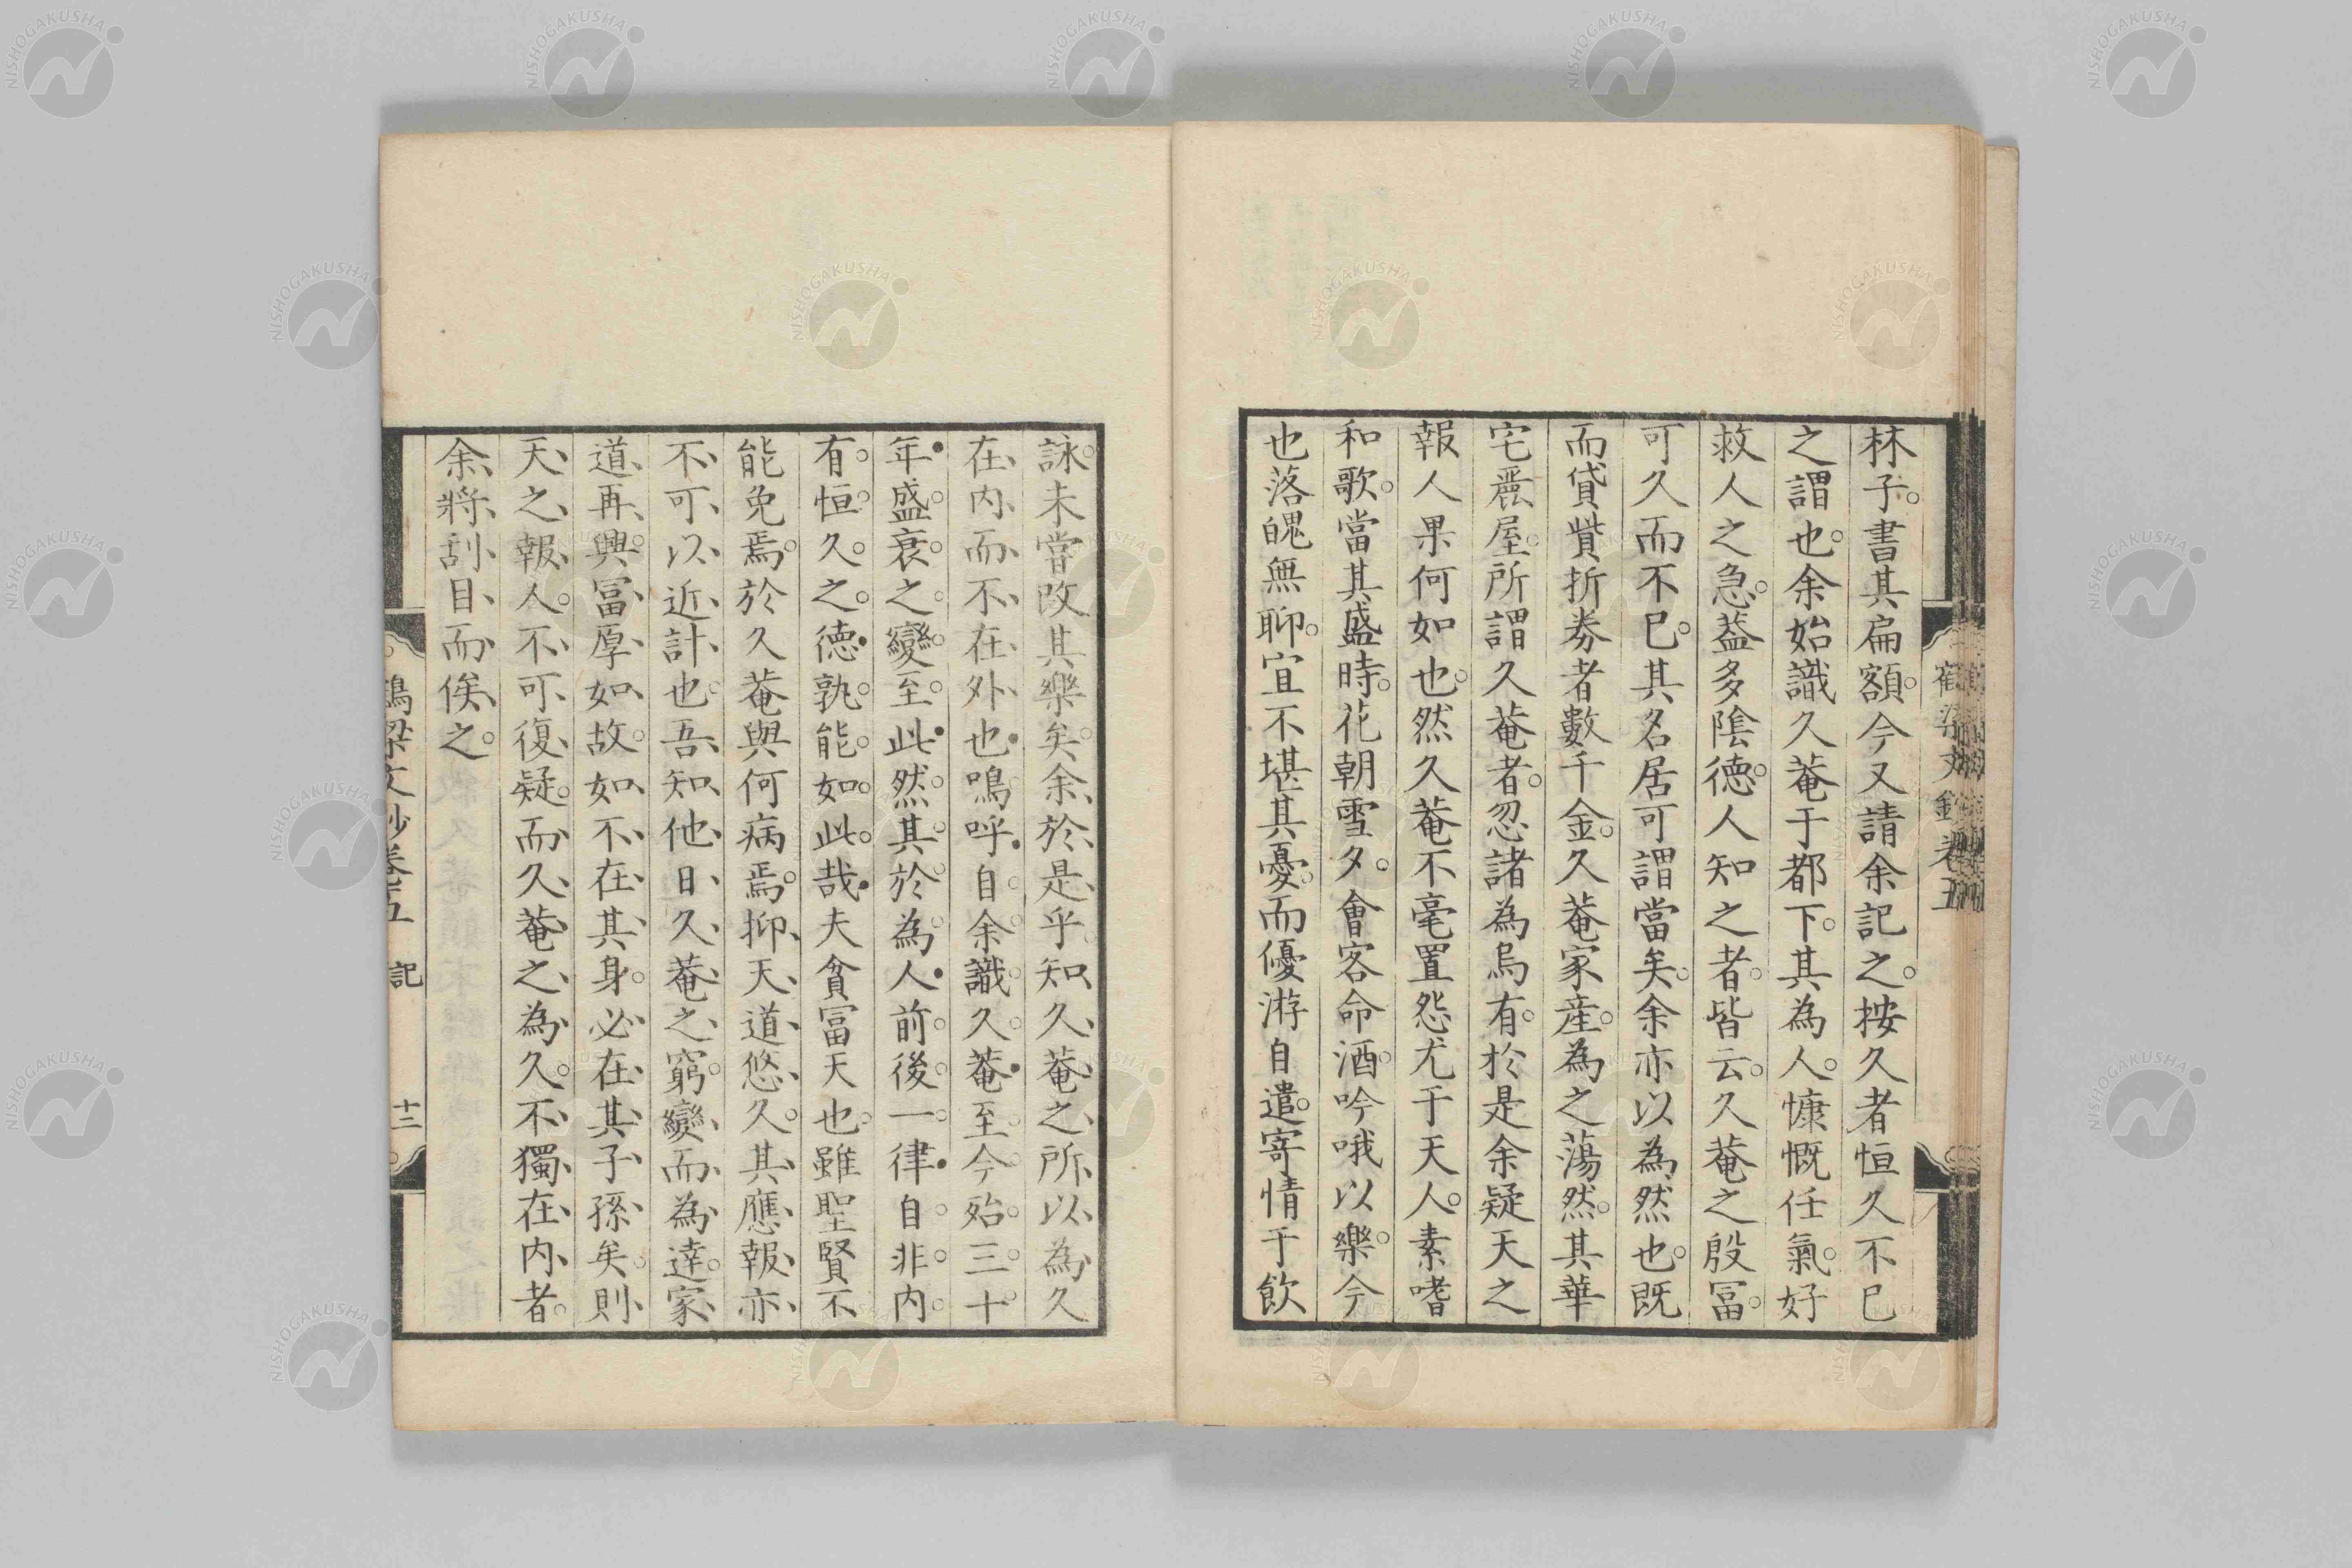 林子書其扁額今又請余記之按久者恒久不已
之謂也余始識久菴于都下其為人慷慨任氣好
救人之急葢多陰德人知之者皆云久菴之殷冨
可久而不已其名居可謂當矣余亦以為然也既
而貸貲折券者數千金久菴家産為之蕩然其華
宅麗屋所謂久菴者忽諸為烏有於是余疑天之
報人果何如也然久菴不毫置怨尤于天人素嗜
和歌當其盛時花朝雪夕會客命酒吟哦以樂今
也落魄無聊宜不堪其憂而優游自遣寄情于飲
詠未嘗改其樂矣余於是乎知久菴之所以為久
在内而不在外也嗚呼自余識久菴至今殆三十
年盛衰之變至此然其於為人前後一律自非内
有恒久之德孰能如此哉夫貧冨天也雖聖賢不
能免焉於久菴與何病焉抑天道悠久其應報亦
不可以近計也吾知他日久菴之窮變而為達家
道再興冨厚如故如不在其身必在其子孫矣則
天之報人不可復疑而久菴之為久不獨在内者
余將刮目而俟之
鶴梁文鈔卷五 記 十二
NISHOGAKUSHA